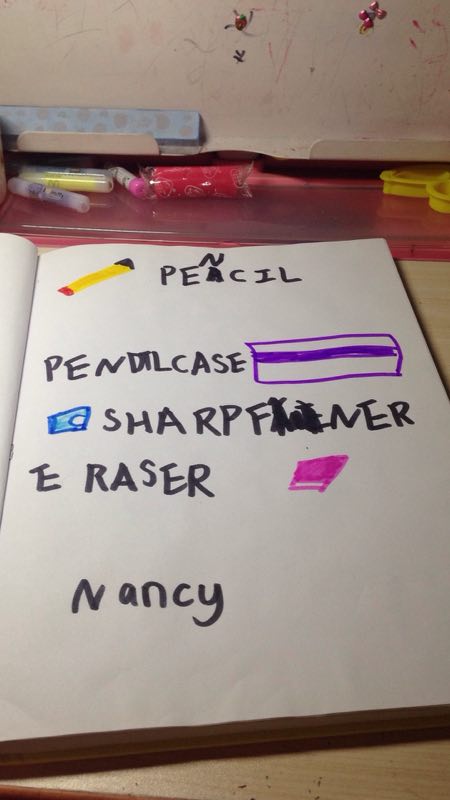 PENCIL
PENCILCASE
SHARPENER
E RASER
Nancy